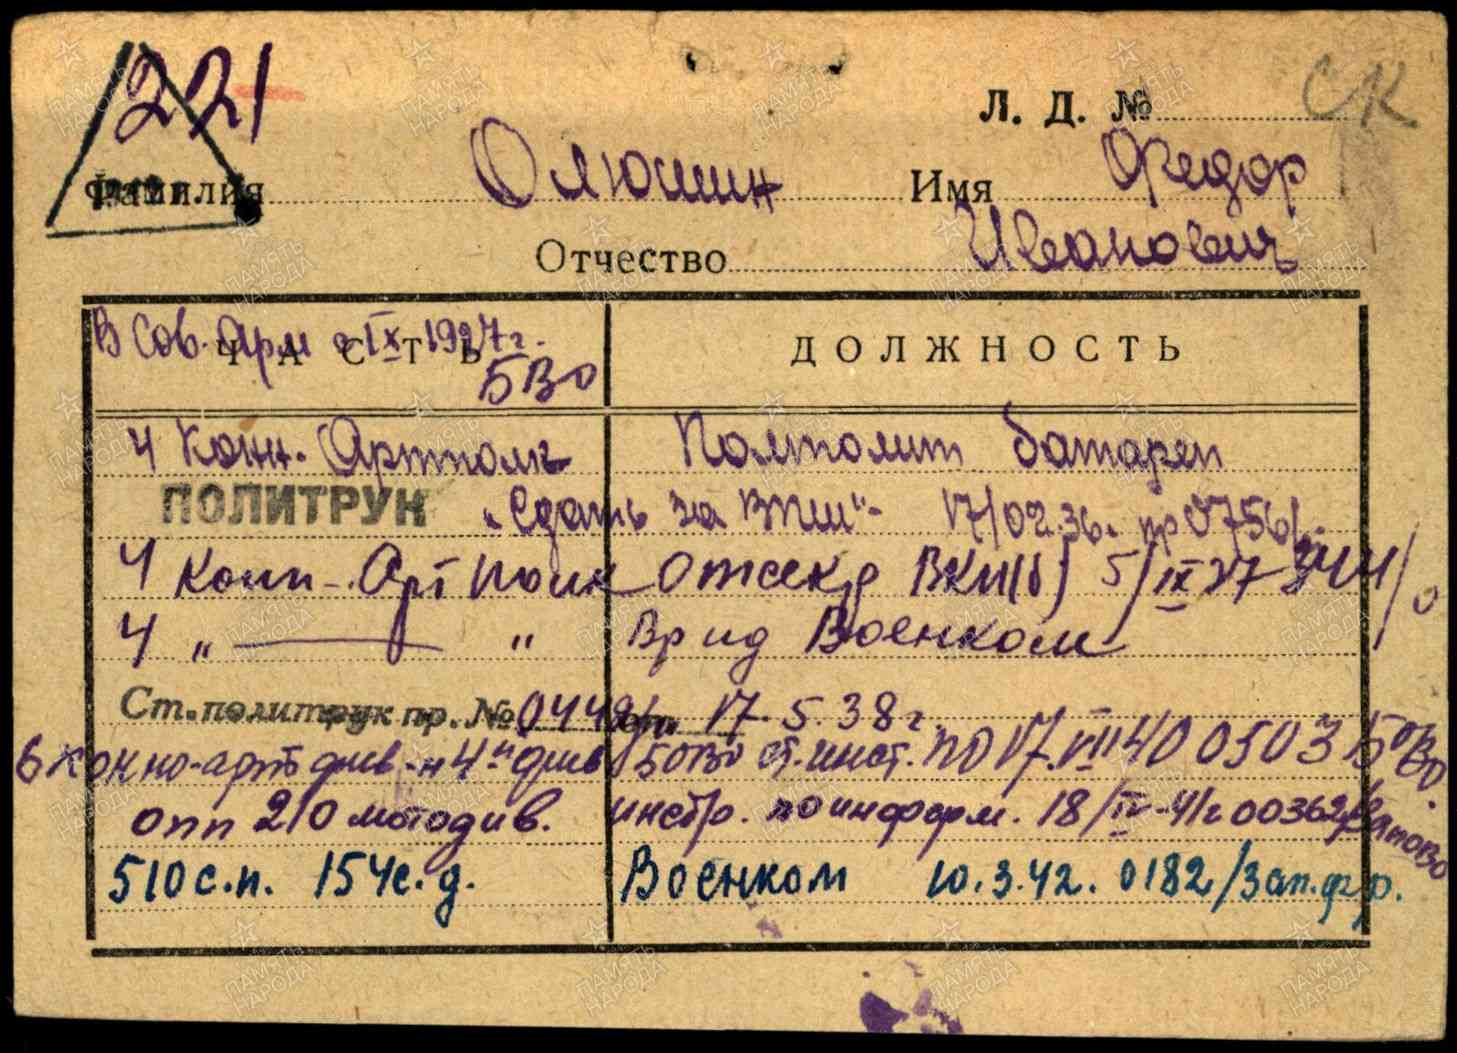 221
Л. Д. № СК
Фамилия Олюшин Имя Федор
Отчество Иванович
В Сов. Арм с IX 1927 г.
ЧАСТЬ ДОЛЖНОСТЬ
БВО
4 Конн. Артполк Помполит батареи
ПОЛИТРУК "Сдать за ВПШ"- 17/02.36. пр 0756/
4 Конн-Арт полк Отсекр ВКП(б) 5/IX 37
4 " — " Врид Военком
Ст. политрук пр. № 0449/ от 17. 5. 38 г.
6 конно-арт. див-н 4й див БОВО ст. инст. ПО 17.VII 40 0503 БОВО.
опп 210 мотодив. инстр. по информ. 18/IV-41г 00362/ЗапОВО
510 с.п. 154 с.д. Военком 10.3.42. 0182/Зап.фр.